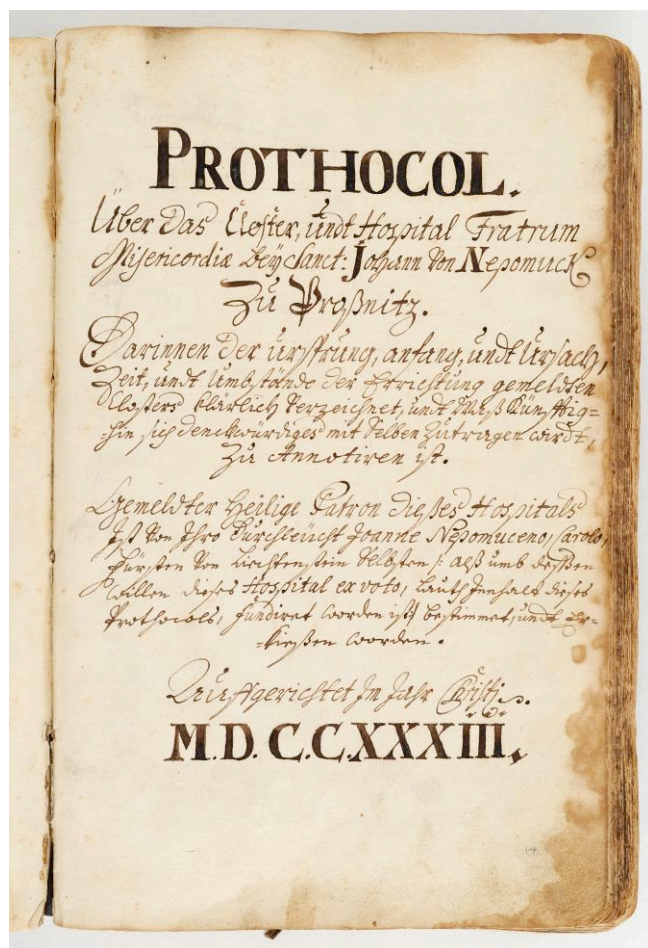 PROTHOCOL.
Über Das Closter, undt Hospital Fratrum
Misericordiæ Beÿ Sanct: Johann Von Nepomuck
Zu Proßnitz.
Darinnen der ursprung, anfang, undt Ursach,
Zeit, undt Umbstände der Errichtung gemeldten
Closters Klärlich Verzeichnet, undt Waß Künfftig=
hin sich denckwürdiges mit Selben Zutragen wirdt,
Zu Annotiren ist.
Gemeldter Heilige Patron dießes Hospitals
Ist Von Ihro Durchleücht Joanne Nepomuceno, Carolo,
Fürsten Von Liechtenstein Selbsten /: alß umb deßßen
Willen dieses Hospital ex voto, lauth Innhalt dieses
Prothocols, fundiret worden ist :/ bestimmet, undt Er=
kießen worden.
Auffgerichtet Im Jahr Christi
M.D.C.C.XXXIII.